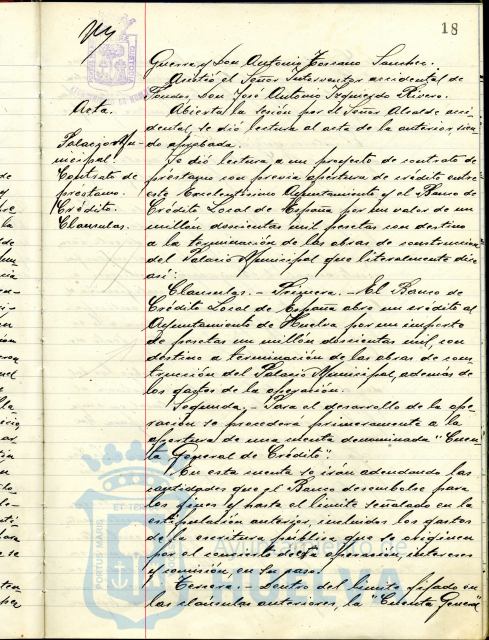 18
Guerra y Don Antonio Serrano Sanchez.
Asistió el Señor Interventor accidental de
Fondos, Don José Antonio Izquierdo Rivero.
Acta.
Abierta la sesión por el Señor Alcalde acci-
dental, se dió lectura al acta de la anterior sien-
do aprobada.
Palacio Mu-
nicipal.
Contrato de
préstamo.
Crédito.
Cláusulas.
Se dió lectura a un proyecto de contrato de
préstamo con previa apertura de crédito entre
este Excelentísimo Ayuntamiento y el Banco de
Crédito Local de España por un valor de un
millón doscientas mil pesetas con destino
a la terminación de las obras de construcción
del Palacio Municipal que literalmente dice
así:
Clausulas. - Primera. - El Banco de
Crédito Local de España abre un crédito al
Ayuntamiento de Huelva por un importe
de pesetas un millón doscientas mil, con
destino a terminación de las obras de cons-
trucción del Palacio Municipal, además de
los gastos de la operación.
Segunda. - Para el desarrollo de la ope-
ración se procederá primeramente a la
apertura de una cuenta denominada "Cuen-
ta General de Crédito".
En esta cuenta se irán adeudando las
cantidades que el Banco desembolse para
los fines y hasta el límite señalado en la
estipulación anterior, incluidos los gastos
de la escritura pública que se originen
por el contrato de esta operación, intereses
y comisión en su caso.
Tercera. - Dentro del límite fijado en
las cláusulas anteriores, la "Cuenta General
PORTUS MARIS
Ayuntamiento de
HUELVA